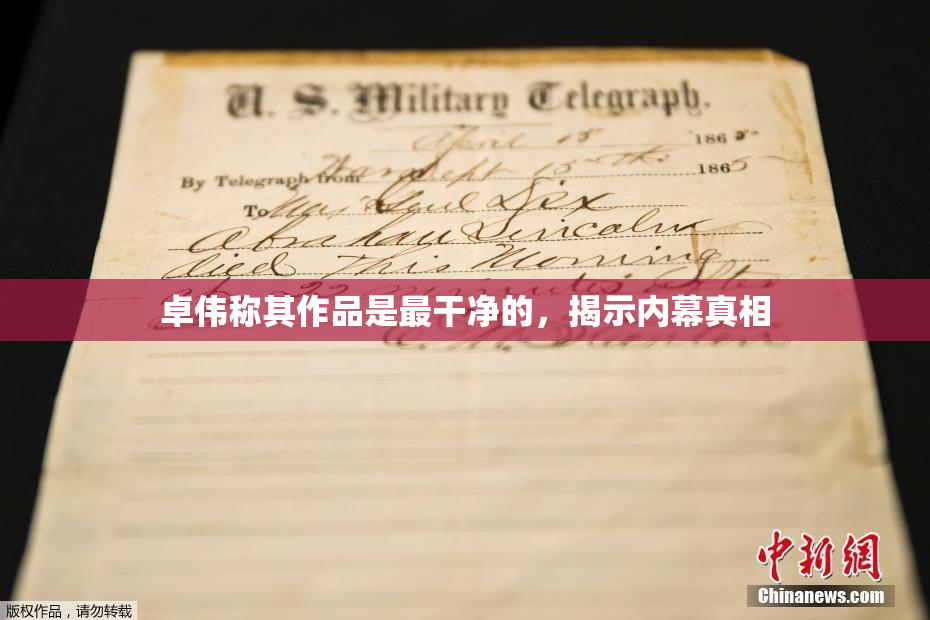 U. S. Military Telegraph.
April 15 1865
By Telegraph from War Dept 15th 1865
To Maj Genl Dix
Abraham Lincoln
died This Morning
at 22 minutes after
卓伟称其作品是最干净的，揭示内幕真相
E. M. Stanton
中新网
Chinanews.com
版权作品，请勿转载